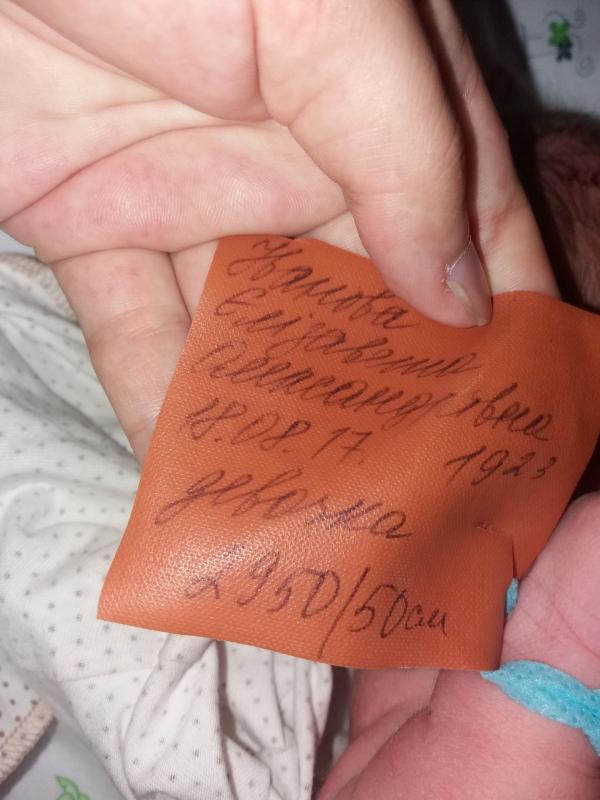 Єлізавета
Александровна
18.08.17. 1923
девочка
2950/50см